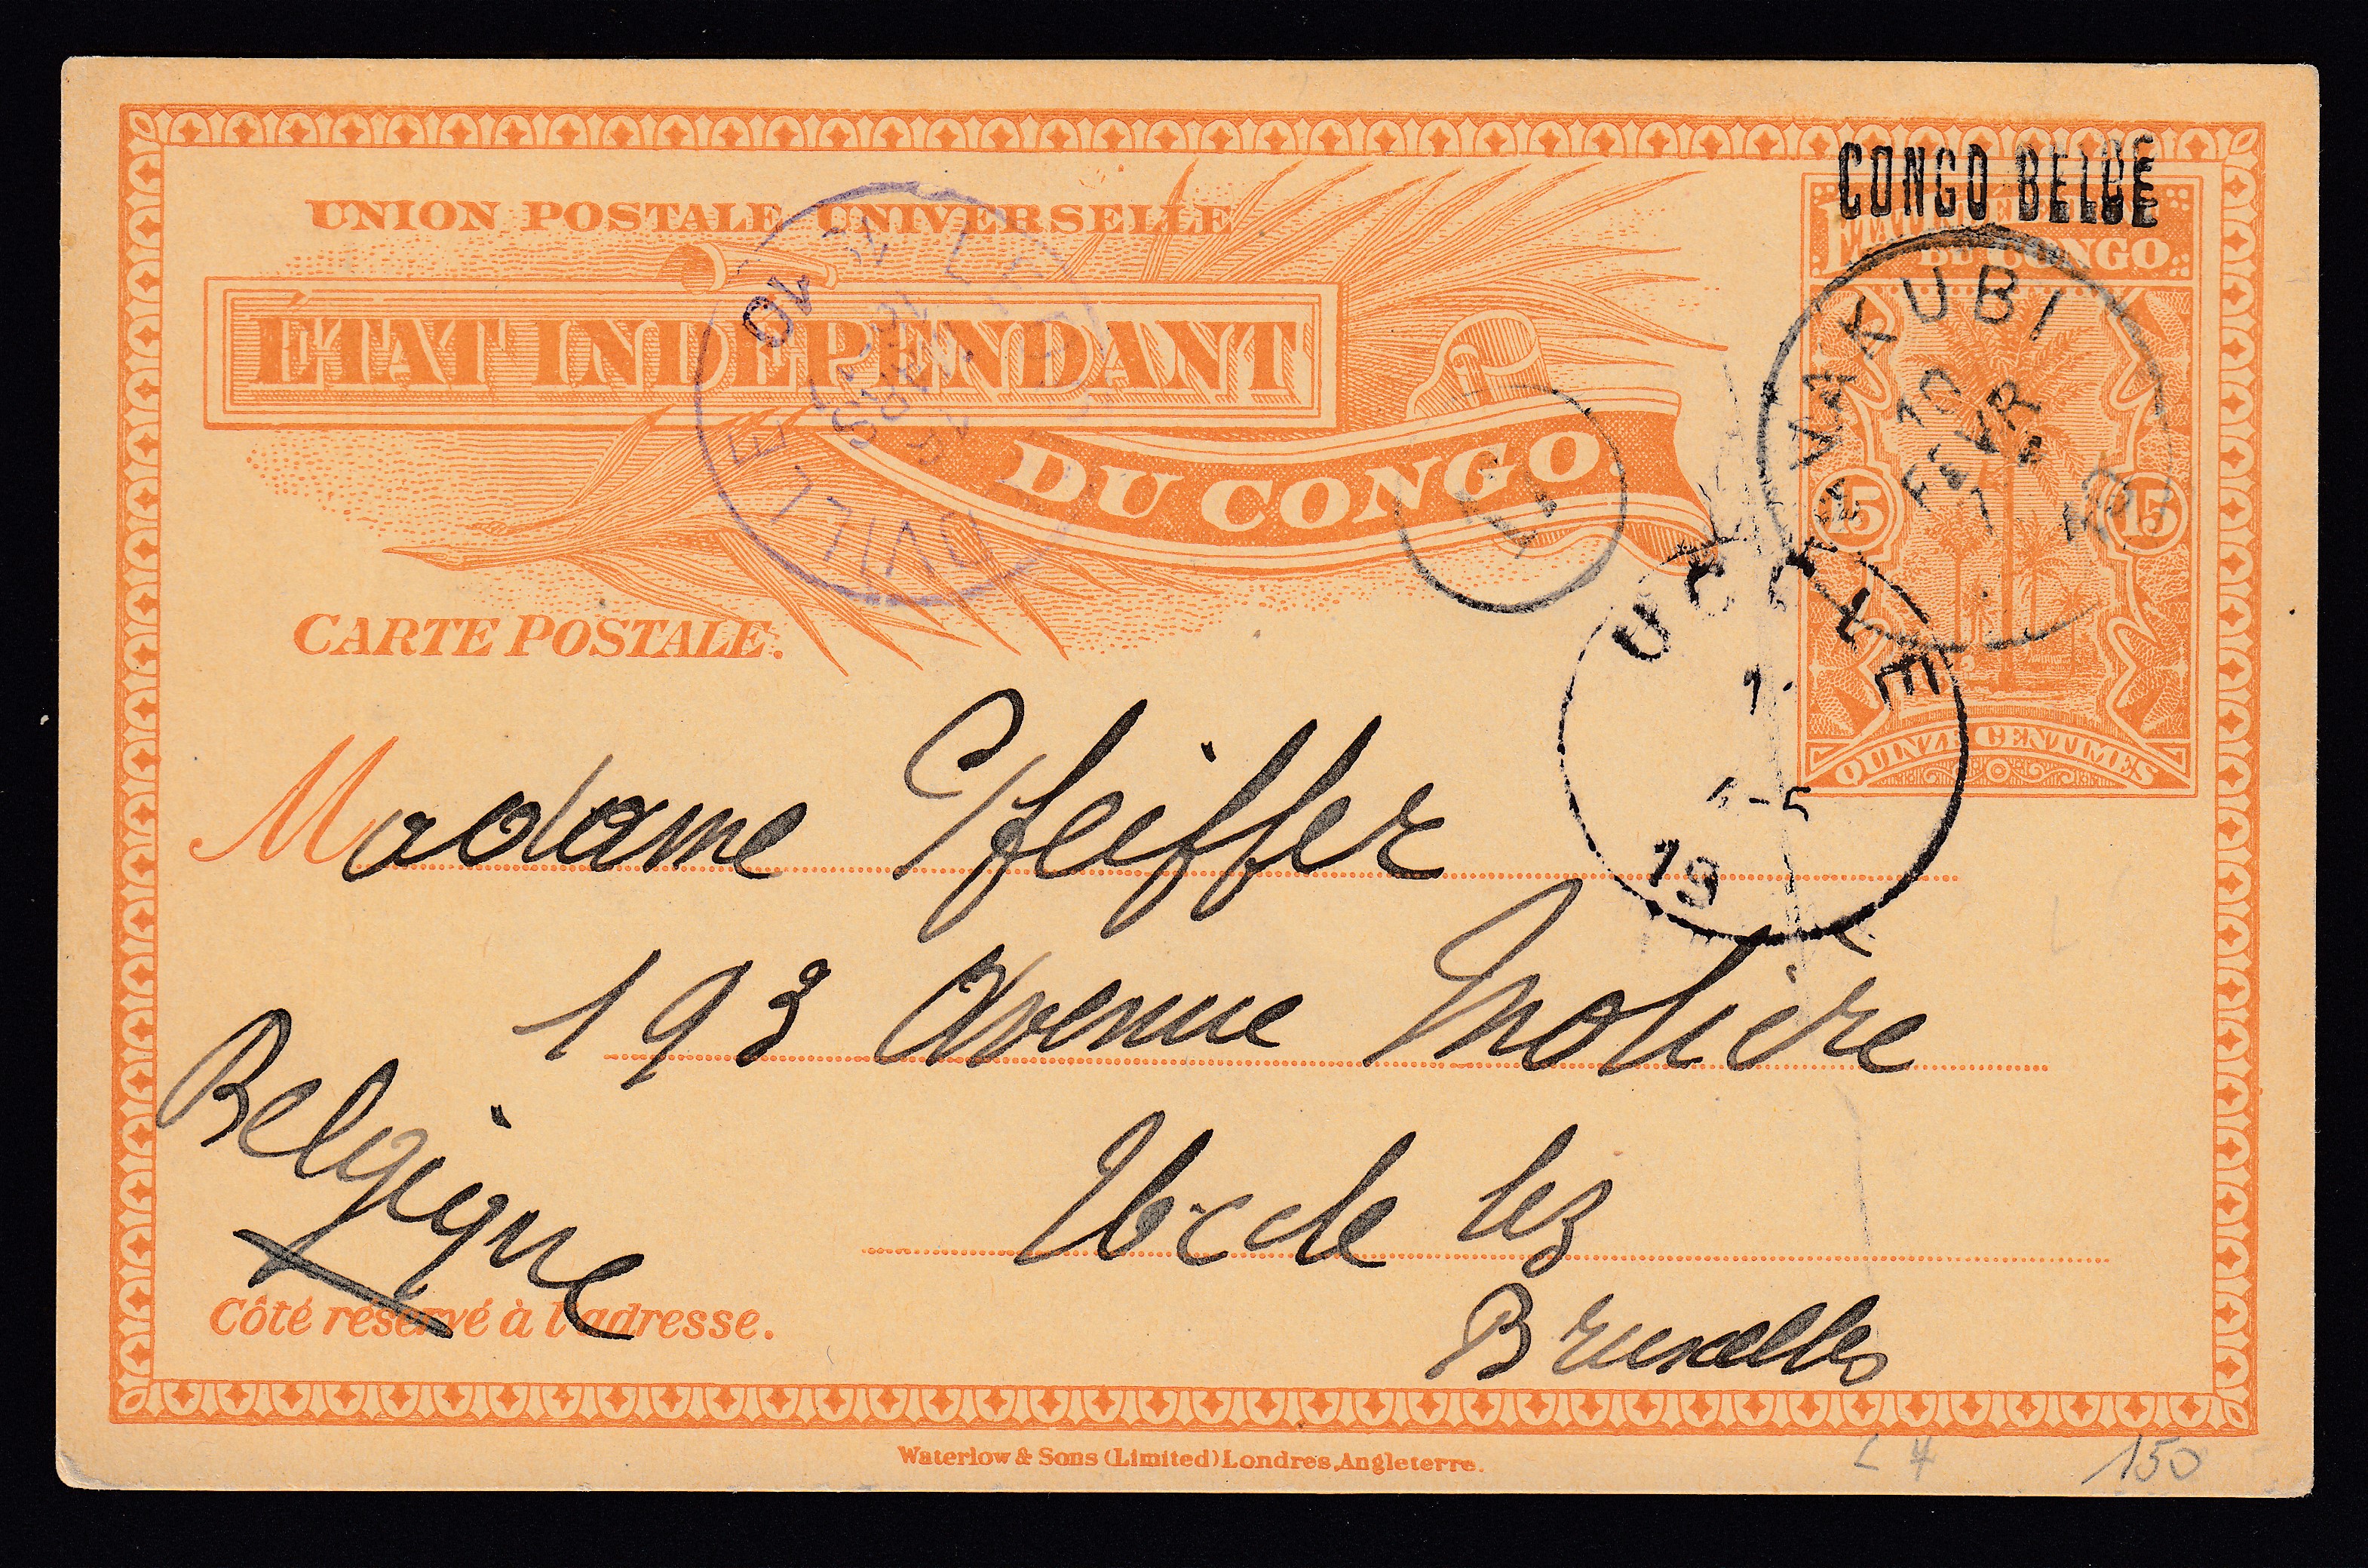 UNION POSTALE UNIVERSELLE
CONGO BELGE
ÉTAT INDÉPENDANT
DU CONGO.
DU CONGO
15 15
QUINZE CENTIMES
VAKUBI
10
FEVR
7
LEO VILLE
MARS
10
UCCLE
19
CARTE POSTALE.
Madame Pfeiffer
193 Avenue Molière
Uccle lez
Bruxelles
Belgique
Côté réservé à l'adresse.
Waterlow & Sons (Limited) Londres, Angleterre.
L 4 150